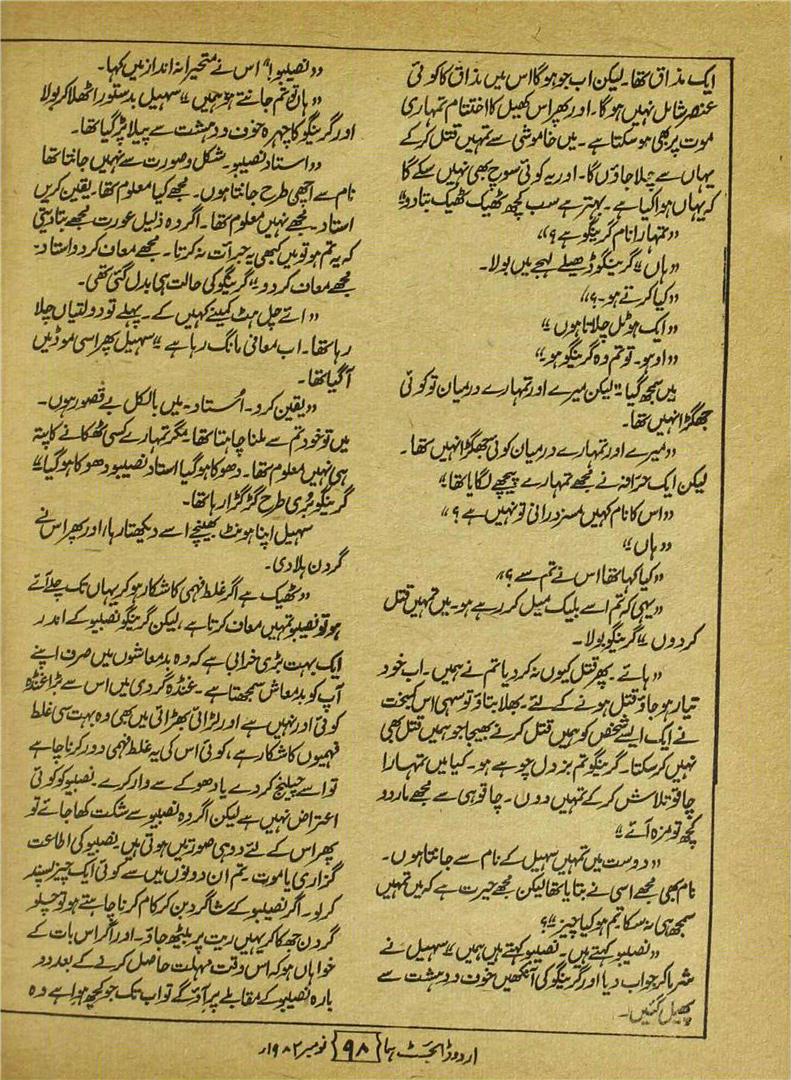 ایک مذاق تھا۔ لیکن اب جو ہوگا اس میں مذاق کا کوئی
عنصر شامل نہیں ہوگا۔ اور پھر اس کھیل کا اختتام تمہاری
موت پر بھی ہو سکتا ہے۔ میں خاموشی سے تمہیں قتل کر کے
یہاں سے چلا جاؤں گا۔ اور یہ کوئی سوچ بھی نہیں سکے گا
کہ یہاں ہوا کیا ہے۔ بہتر ہے سب کچھ ٹھیک ٹھیک بتا دو"
"تمہارا نام گرینگو ہے؟"
"ہاں" گرینگو ڈھیلے لہجے میں بولا۔
"کیا کرتے ہو۔؟"
"ایک ہوٹل چلاتا ہوں"
"اوہو۔ تو تم وہ گرینگو ہو"
میں سمجھ گیا" لیکن میرے اور تمہارے درمیان تو کوئی
جھگڑا نہیں تھا۔
"میرے اور تمہارے درمیان کوئی جھگڑا نہیں تھا۔
لیکن ایک حرافہ نے مجھے تمہارے پیچھے لگایا تھا"
"اس کا نام کہیں مسز درانی تو نہیں ہے؟"
"ہاں"
"کیا کہا تھا اس نے تم سے؟"
"یہی کہ تم اسے بلیک میل کر رہے ہو۔ میں تمہیں قتل
کر دوں" گرینگو بولا۔
"ہائے۔ پھر قتل کیوں نہ کر دیا تم نے ہمیں۔ اب خود
تیار ہو جاؤ قتل ہونے کے لئے۔ بھلا بتاؤ تو سہی اس کمبخت
نے ایک ایسے شخص کو ہمیں قتل کرنے بھیجا جو ہمیں قتل بھی
نہیں کر سکتا۔ گرینگو تم بزدل چوہے ہو۔ کیا میں تمہارا
چاقو تلاش کر کے تمہیں دوں۔ چاقو ہی سے مجھے مار دو
کچھ تو مزہ آئے"
"دوست میں تمہیں سہیل کے نام سے جانتا ہوں۔
نام بھی مجھے اسی نے بتایا تھا لیکن مجھے حیرت ہے کہ میں تمہیں
سمجھ ہی نہ سکا تم ہو کیا چیز"؟
"نصیبو کہتے ہیں۔ نصیبو کہتے ہیں ہمیں" سہیل نے
شرما کر جواب دیا اور گرینگو کی آنکھیں خوف و دہشت سے
پھیل گئیں۔
"نصیبو!" اس نے متحیرانہ انداز میں کہا۔
"ہاں تم جانتے ہو ہمیں" سہیل بدستور اٹھلا کر بولا
اور گرینگو کا چہرہ خوف و دہشت سے پیلا پڑ گیا تھا۔
"استاد نصیبو۔ شکل و صورت سے نہیں جانتا تھا
نام سے اچھی طرح جانتا ہوں۔ مجھے کیا معلوم تھا۔ یقین کریں
استاد۔ مجھے نہیں معلوم تھا۔ اگر وہ ذلیل عورت مجھے بتا دیتی
کہ یہ تم ہو تو میں کبھی یہ جرأت نہ کرتا۔ مجھے معاف کر دو استاد۔
مجھے معاف کر دو" گرینگو کی حالت ہی بدل گئی تھی۔
"ائے چل ہٹ کمینے کہیں کے۔ پہلے تو دولتیاں چلا
رہا تھا۔ اب معافی مانگ رہا ہے" سہیل پھر اسی موڈ میں
آ گیا تھا۔
"یقین کرو۔ استاد۔ میں بالکل بے قصور ہوں۔
میں تو خود تم سے ملنا چاہتا تھا۔ مگر تمہارے کسی ٹھکانے کا پتہ
ہی نہیں معلوم تھا۔ دھوکا ہو گیا استاد نصیبو دھوکا ہو گیا"
گرینگو بُری طرح گڑگڑا رہا تھا۔
سہیل اپنا ہونٹ بھینچے اسے دیکھتا رہا، اور پھر اس نے
گردن ہلا دی۔
"ٹھیک ہے اگر غلط فہمی کا شکار ہو کر یہاں تک چلے آئے
ہو تو نصیبو تمہیں معاف کرتا ہے، لیکن گرینگو نصیبو کے اندر
ایک بہت بڑی خرابی ہے کہ وہ بدمعاشوں میں صرف اپنے
آپ کو بدمعاش سمجھتا ہے۔ غنڈہ گردی میں اس سے بڑا غنڈہ
کوئی اور نہیں ہے اور لڑائی بھڑائی میں بھی وہ بہت سی غلط
فہمیوں کا شکار ہے، کوئی اس کی یہ غلط فہمی دور کرنا چاہے
تو اسے چیلنج کر دے یا دھوکے سے وار کرے۔ نصیبو کو کوئی
اعتراض نہیں ہے لیکن اگر وہ نصیبو سے شکست کھا جائے تو
پھر اس کے لئے دو ہی صورتیں ہوتی ہیں۔ نصیبو کی اطاعت
گزاری یا موت۔ تم ان دونوں میں سے کوئی ایک چیز پسند
کر لو۔ اگر نصیبو کے شاگرد بن کر کام کرنا چاہتے ہو تو چلو
گردن جھکا کر یہیں ریت پر بیٹھ جاؤ۔ اور اگر اس بات کے
خواہاں ہو کہ اس وقت مہلت حاصل کرنے کے بعد دو
بارہ نصیبو کے مقابلے پر آؤ گے تو اب تک جو کچھ ہوا ہے وہ
اردو ڈائجسٹ ہما {۹۸} نومبر ۱۹۸۲ء